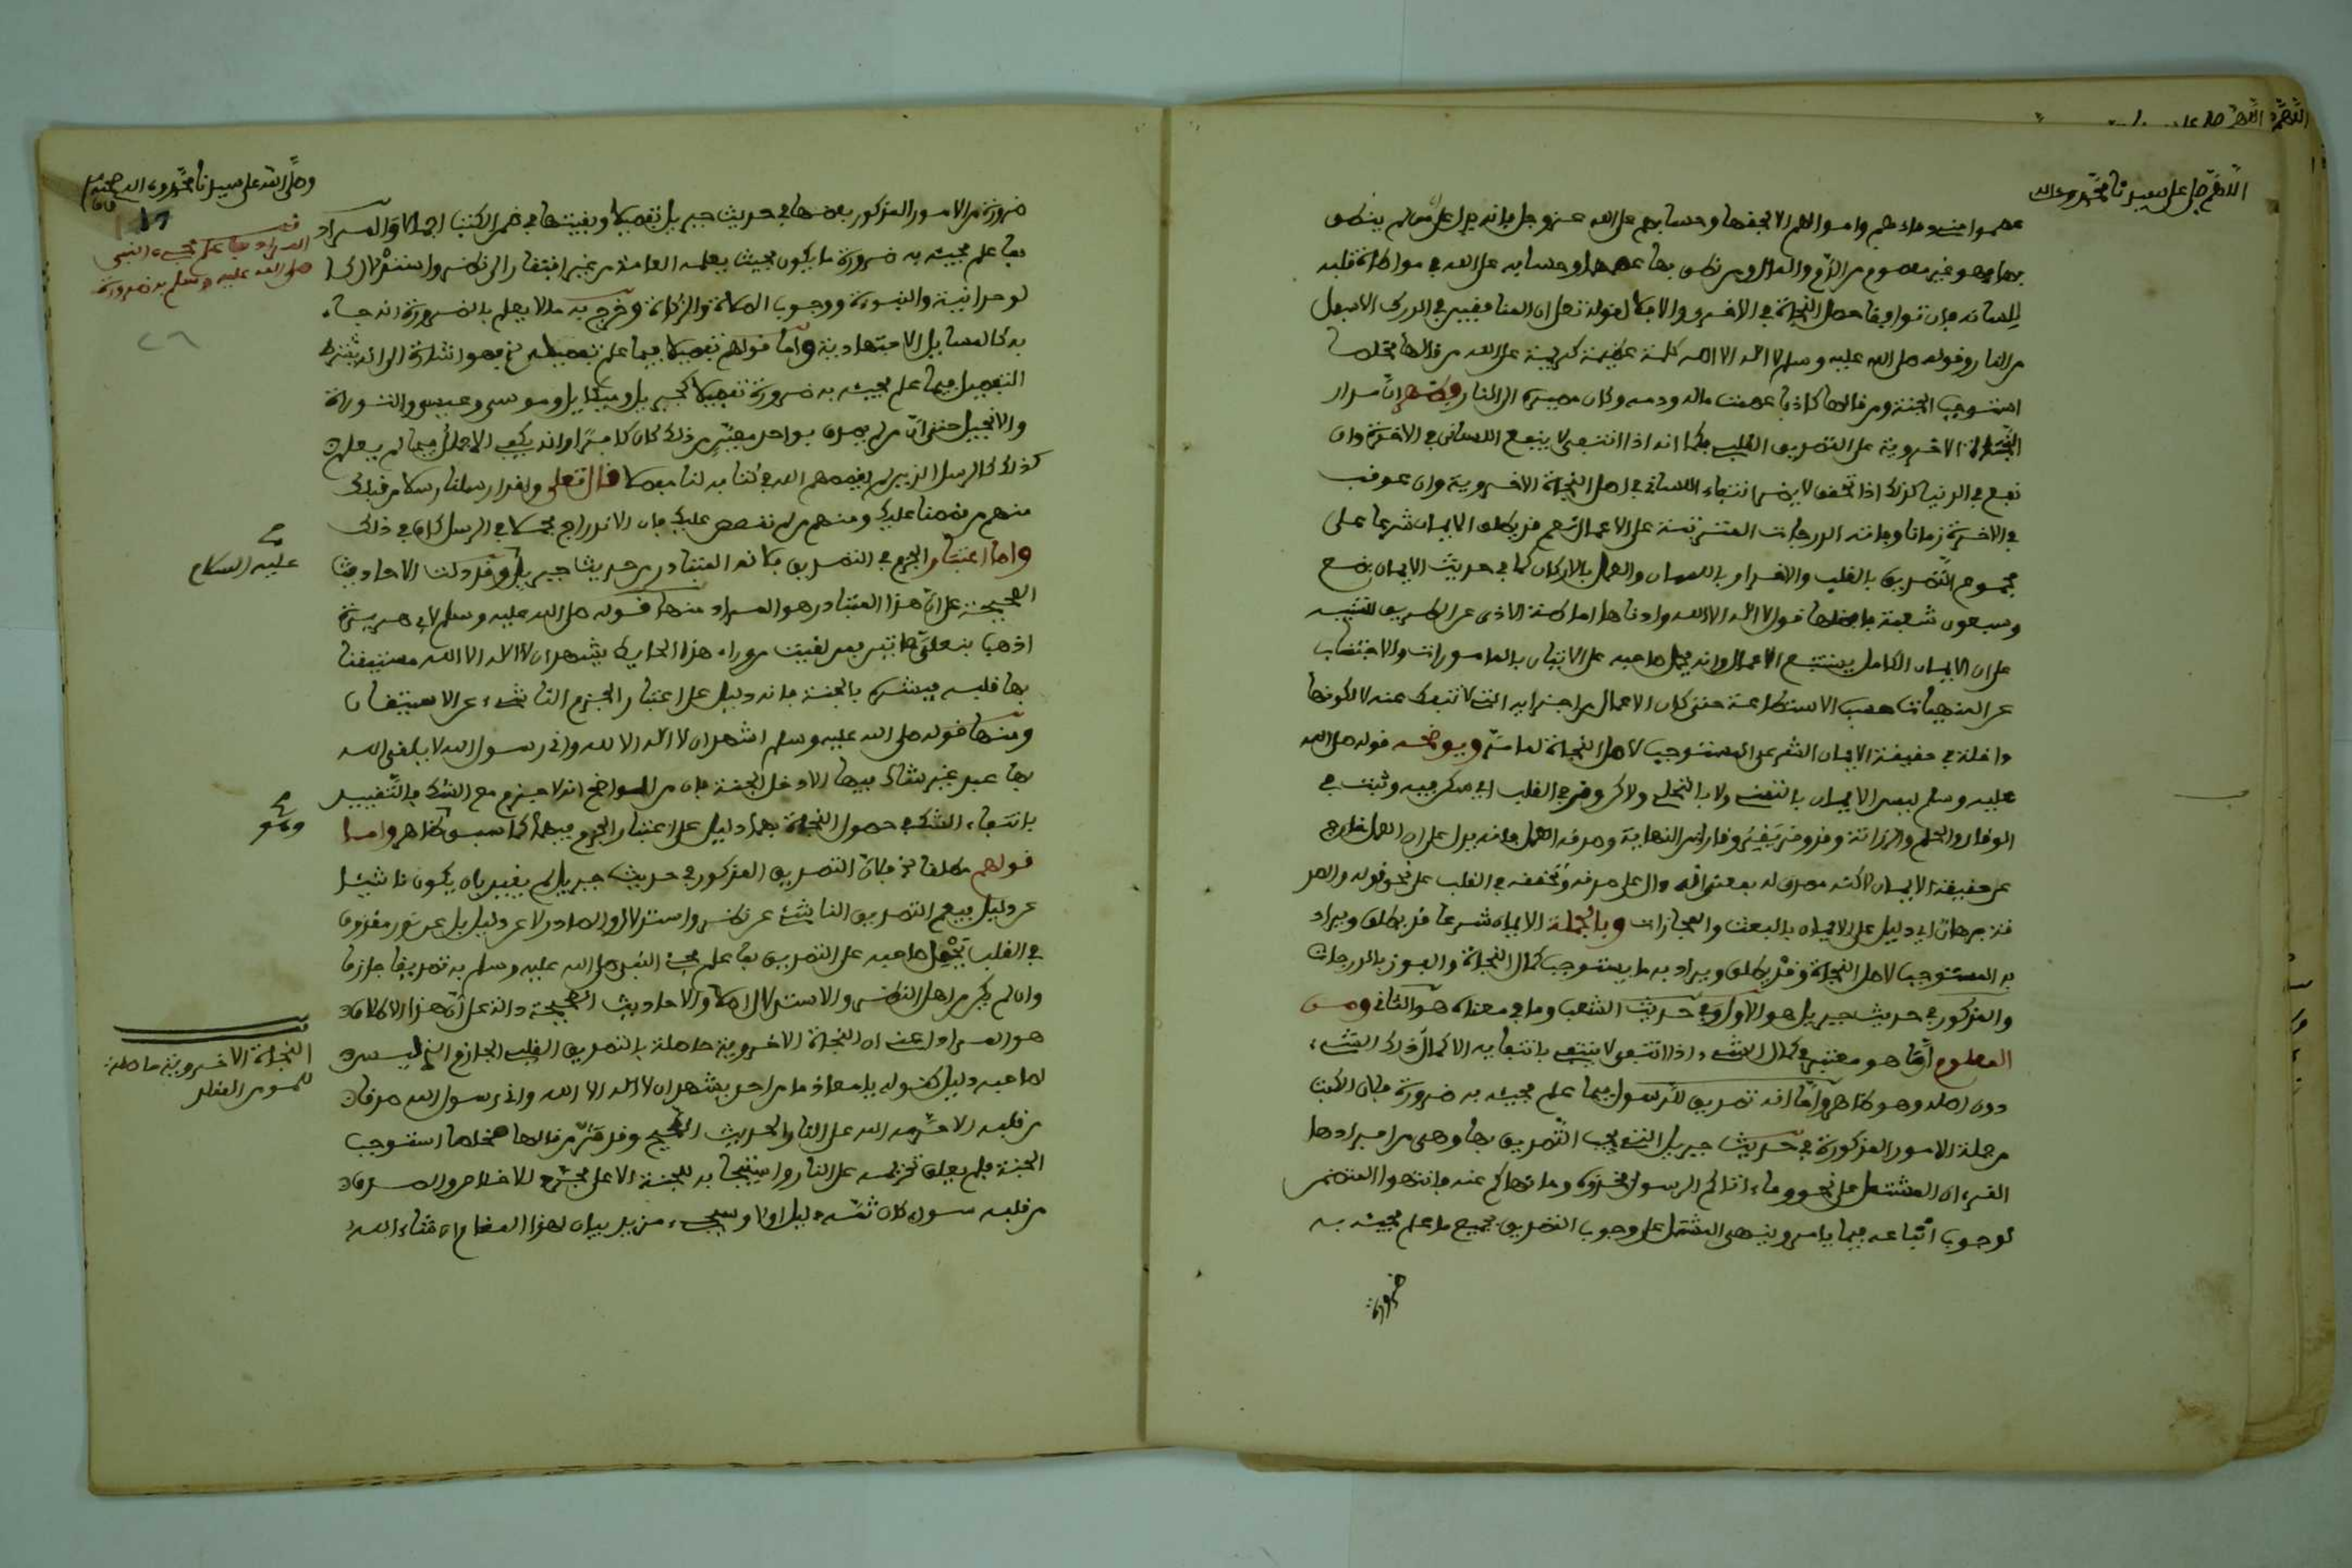 اللهم صل على سيدنا محمد وءاله
عصموا مني دماءهم واموالهم الا بحقها وحسابهم على الله عز وجل فانه يدل على ان من لم ينطق
بها فهو غير معصوم الدم والمال ومن نطق بها عصمهما وحسابه على الله في مواطاة قلبه
للسانه فان توافقا حصل النجاة في الاخرى والا فلا لقوله تعلى ان المنافقين في الدرك الاسفل
من النار وقوله صلى الله عليه وسلم لا اله الا الله كلمة عظيمة كريمة على الله من قالها مخلصا
استوجب الجنة ومن قالها كاذبا عصمت ماله ودمه وكان مصيره الى النار وبظهر ان مدار
النجاة الاخروية على التصديق القلبي فكما انه اذا انتفى لا ينفع اللساني في الاخرة وان
نفع في الدنيا كذلك اذا تحقق لا يضر انتفاء اللساني في اصل النجاة الاخروية وان عوقب
في الاخرة زمانا وفاتته الدرجات المترتبة على الاعمال نعم قد يطلق الايمان شرعا على
مجموع التصديق بالقلب والاقرار باللسان والعمل بالاركان كما في حديث الايمان بضع
وسبعون شعبة فافضلها قول لا اله الا الله وادناها اماطة الاذى عن الطريق للتنبيه
على ان الايمان الكامل يستتبع الاعمال وانه يحمل صاحبه على الاتيان بالمامورات والاجتناب
عن المنهيات حسب الاستطاعة حتى كان الاعمال من اجزايه التي لا تنفك عنه لا لكونها
داخلة في حقيقة الايمان الشرعي المستوجب لاصل النجاة لما مر ويوضحه قوله صلى الله
عليه وسلم ليس الايمان بالتمني ولا بالتحلي ولاكن وقر في القلب اي سكن فيه وثبت في
الوقار والحلم والرزانة وقد وقر يقر وقارا من النهاية وصدقه العمل فانه يدل على ان العمل خارج
عن حقيقة الايمان لاكنه مصدق له بمعنى انه دال على صدقه وتحققه في القلب على نحو قوله والصد
قة برهان اي دليل على الايمان بالبعث والمجازات وبالجملة الايمان شرعا قد يطلق ويراد
به المستوجب لاصل النجاة وقد يطلق ويراد به ما يستوجب كمال النجاة والفوز بالدرجات
والمذكور في حديث جبريل هو الاول وفي حديث الشعب وما في معناه هو الثاني ومن
المعلوم ان ما هو معتبر في كمال الشيء اذا انتفى لا ينتفي بانتفايه الا كمال ذلك الشيء
دون اصله وهو ظاهر واما انه تصديق للرسول فيما علم مجيئه به ضرورة فلان الكتب
من جملة الامور المذكورة في حديث جبريل التي يجب التصديق بها وهي من افرادها
القرءان المشتمل على نحو وما ءاتاكم الرسول فخذوه وما نهاكم عنه فانتهوا المتضمن
لوجوب اتباعه فيما يامر وينهى المشتمل على وجوب التصديق بجميع ما علم مجيئه به
ضرورة
وصلى الله على سيدنا محمد وءاله وصحبه
ضرورة من الامور المذكور بعضها في حديث جبريل تفصيلا وبقيتها في ضمن الكتب اجمالا والمراد
بما علم مجيئه به ضرورة ما يكون بحيث يعلمه العامة من غير افتقار الى نظر واستدلال كا
لوحدانية والنبوة ووجوب الصلاة والزكاة وخرج به ما لا يعلم بالضرورة انه جاء
به كالمسايل الاجتهادية واما قولهم تفصيلا فيما علم تفصيلا الخ فهو اشارة الى انه يشترط
التفصيل فيما علم مجيئه به ضرورة تفصيلا كجبريل وميكايل وموسى وعيسى والتوراة
والانجيل حتى ان من لم يصدق بواحد معين من ذلك كان كافرا وانه يكفي الاجمال فيما لم يعلم
كذلك كالرسل الذين لم يقصصهم الله في كتابه لنا مفصلا قال تعلى ولقد ارسلنا رسلا من قبلك
منهم من قصصنا عليك ومنهم من لم نقصص عليك فان الاندراج مجملا في الرسل كاف في ذلك
واما اعتبار الجزم في التصديق فلانه المتبادر من حديث جبريل وقد دلت الاحاديث
الصحيحة على ان هذا المتبادر هو المراد منها قوله صلى الله عليه وسلم لابي هريرة
اذهب بنعلي هاتين فمن لقيت من وراء هذا الحايط يشهد ان لا اله الا الله مستيقنا
بها قلبه فبشره بالجنة فانه دليل على اعتبار الجزم الناشيء عن الاستيقان
ومنها قوله صلى الله عليه وسلم اشهد ان لا اله الا الله واني رسول الله لا يلقى الله
بها عبد غير شاك فيهما الا دخل الجنة فان من الواضح انه لا جزم مع الشك فالتقييد
بانتفاء الشك في حصول النجاة بهما دليل على اعتبار الجزم فيهما كما سبق ظاهر واما
قولهم مطلقا فلان التصديق المذكور في حديث جبريل لم يقيد بان يكون ناشئا
عن دليل فيعم التصديق الناشئ عن نظر واستدلال والصادر لا عن دليل بل عن نور مقذوف
في القلب يحمل صاحبه على التصديق بما علم مجيء النبي صلى الله عليه وسلم به تصديقا جازما
وان لم يكن من اهل النظر والاستدلال اصلا والاحاديث الصحيحة دالة على ان هذا الاطلاق
هو المراد اعني ان النجاة الاخروية حاصلة بالتصديق القلبي الجازم الذي ليس
لصاحبه دليل كقوله يا معاذ ما من احد يشهد ان لا اله الا الله واني رسول الله صدقا
من قلبه الا حرمه الله على النار الحديث الصحيح وقد مر من قالها مخلصا استوجب
الجنة فلم يعلق تحريمه على النار واستيجابه للجنة الا على مجرد الاخلاص والصدق
من قلبه سواء كان ثمه دليل اولا وسيجيء مزيد بيان لهذا المقام ان شاء الله
المراد بما علم مجيء النبي
صلى الله عليه وسلم به ضرورة
عليه السلام
وهو
النجاة الاخروية حاصلة
للمومن المقلد